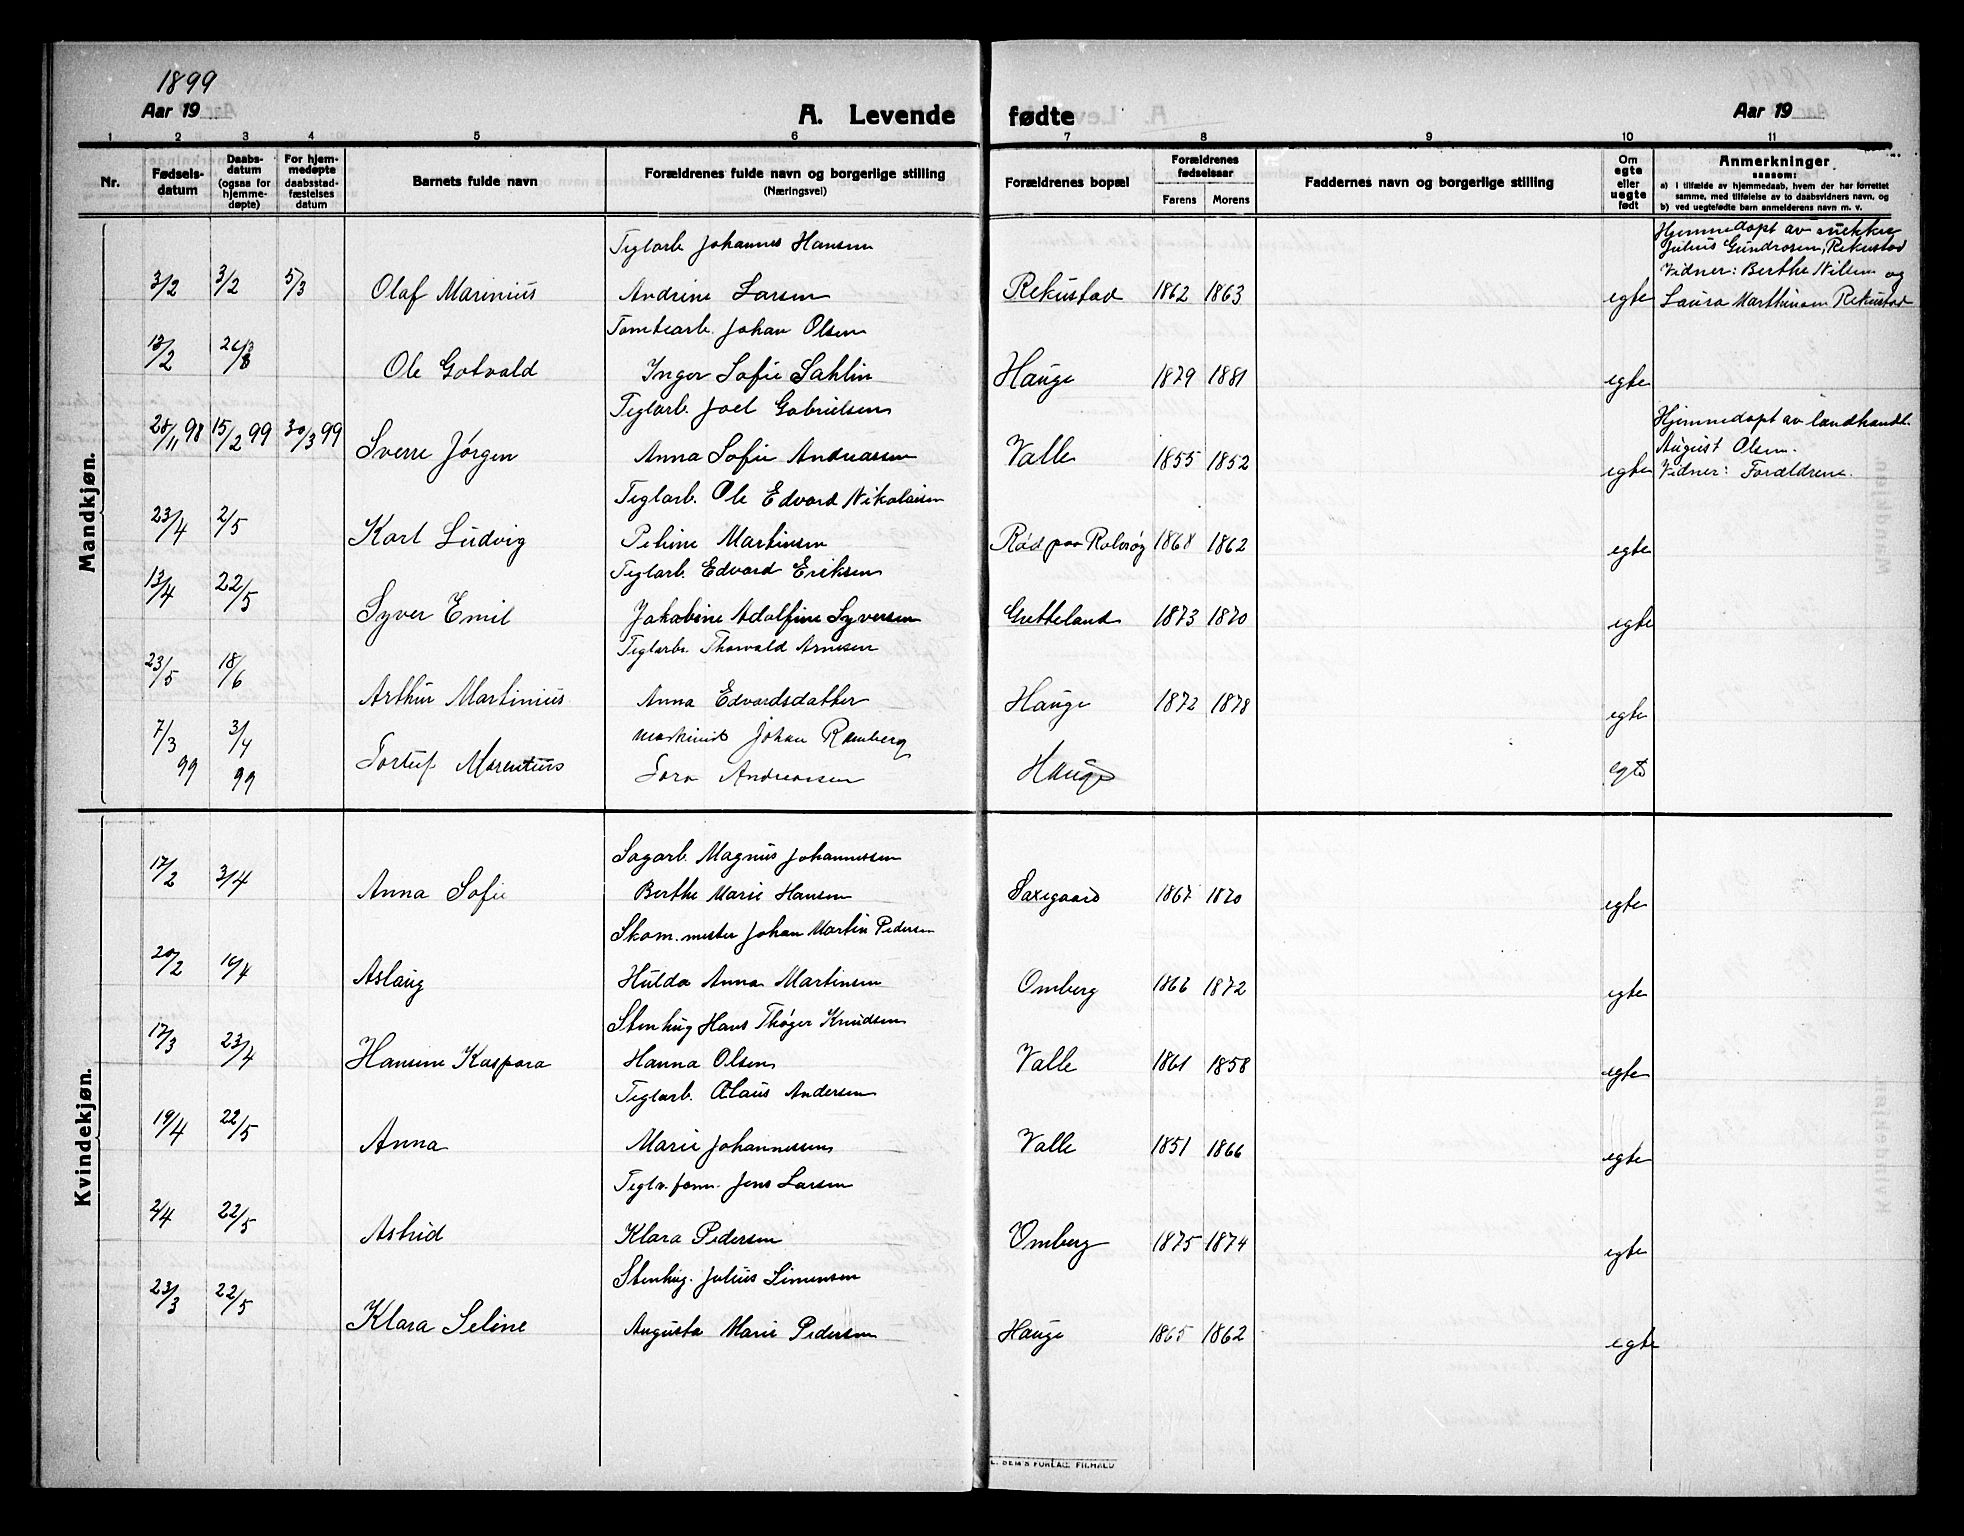 1899
Aar 19
A. Levende fødte
Aar 19
1 2 3 4 5 6 7 8 9 10 11
Nr.
Fødsels-
datum
Daabs-
datum
(ogsaa for
hjemme-
døpte)
For hjem-
medøpte
daabsstad-
fæstelses
datum
Barnets fulde navn
Forældrenes fulde navn og borgerlige stilling
(Næringsvei)
Forældrenes bopæl
Forældrenes
fødselsaar
Farens Morens
Faddernes navn og borgerlige stilling
Om
egte
eller
uegte
født
Anmerkninger
saasom:
a) i tilfælde av hjemmedaab, hvem der har forrettet
samme, med tilføielse av to daabsvidners navn, og
b) ved uegtefødte barn anmelderens navn m. v.
Mandkjøn.
Teglarb. Johannes Hansen
3/2 3/2 5/3 Olaf Marinius Andrine Larsen Rekustad 1862 1863 egte
Hjemmedøpt av
Julius Gundrosen, Rekustad
Vidner: Berthe Nilsen og
Laura Marthinsen Rekustad
Tomtearb. Johan Olsen
13/2 Ole Gotvald Inger Sofie Sahlin Hauge 1879 1881 egte
Teglarb. Joel Gabrielsen
28/11 98 15/2 99 30/3 99 Sverre Jørgen Anna Sofie Andreassen Valle 1855 1852 egte
Hjemmedøpt av landhandl.
August Olsen.
Vidner: Forældrene.
Teglarb. Ole Edvard Nikolaisen
23/4 2/5 Karl Ludvig Petrine Martinsen Rød paa Rolvsøy 1868 1862 egte
Teglarb. Edvard Eriksen
13/4 22/5 Syver Emil Jakobine Adolfine Syversen Gretteland 1873 1870 egte
Teglarb. Thorvald Arnesen
23/5 18/6 Arthur Martinius Anna Edvardsdatter Hauge 1872 1878 egte
maskinist Johan Ramberg
7/3 99 3/4 99 Tortuf Marentius Tora Andreassen Hauge egte
Kvindekjøn.
Sagarb. Magnus Johannessen
17/2 3/4 Anna Sofie Berthe Marie Hansen Saxegaard 1867 1870 egte
Skom.mester Johan Martin Pedersen
20/2 16/4 Aslaug Hulda Anna Martinsen Omberg 1866 1872 egte
Stenhug Hans Thøger Knudsen
17/3 23/4 Hansine Kaspara Hanna Olsen Valle 1861 1858 egte
Teglarb. Olaus Andersen
19/4 22/5 Anna Marie Johannessen Valle 1851 1866 egte
Teglv.form. Jens Larsen
2/4 22/5 Astrid Klara Pedersen Omberg 1875 1874 egte
Stenhug. Julius Simensen
23/3 22/5 Klara Seline Augusta Marie Pedersen Hauge 1865 1862 egte
SEM'S FORLAG. FR.HALD